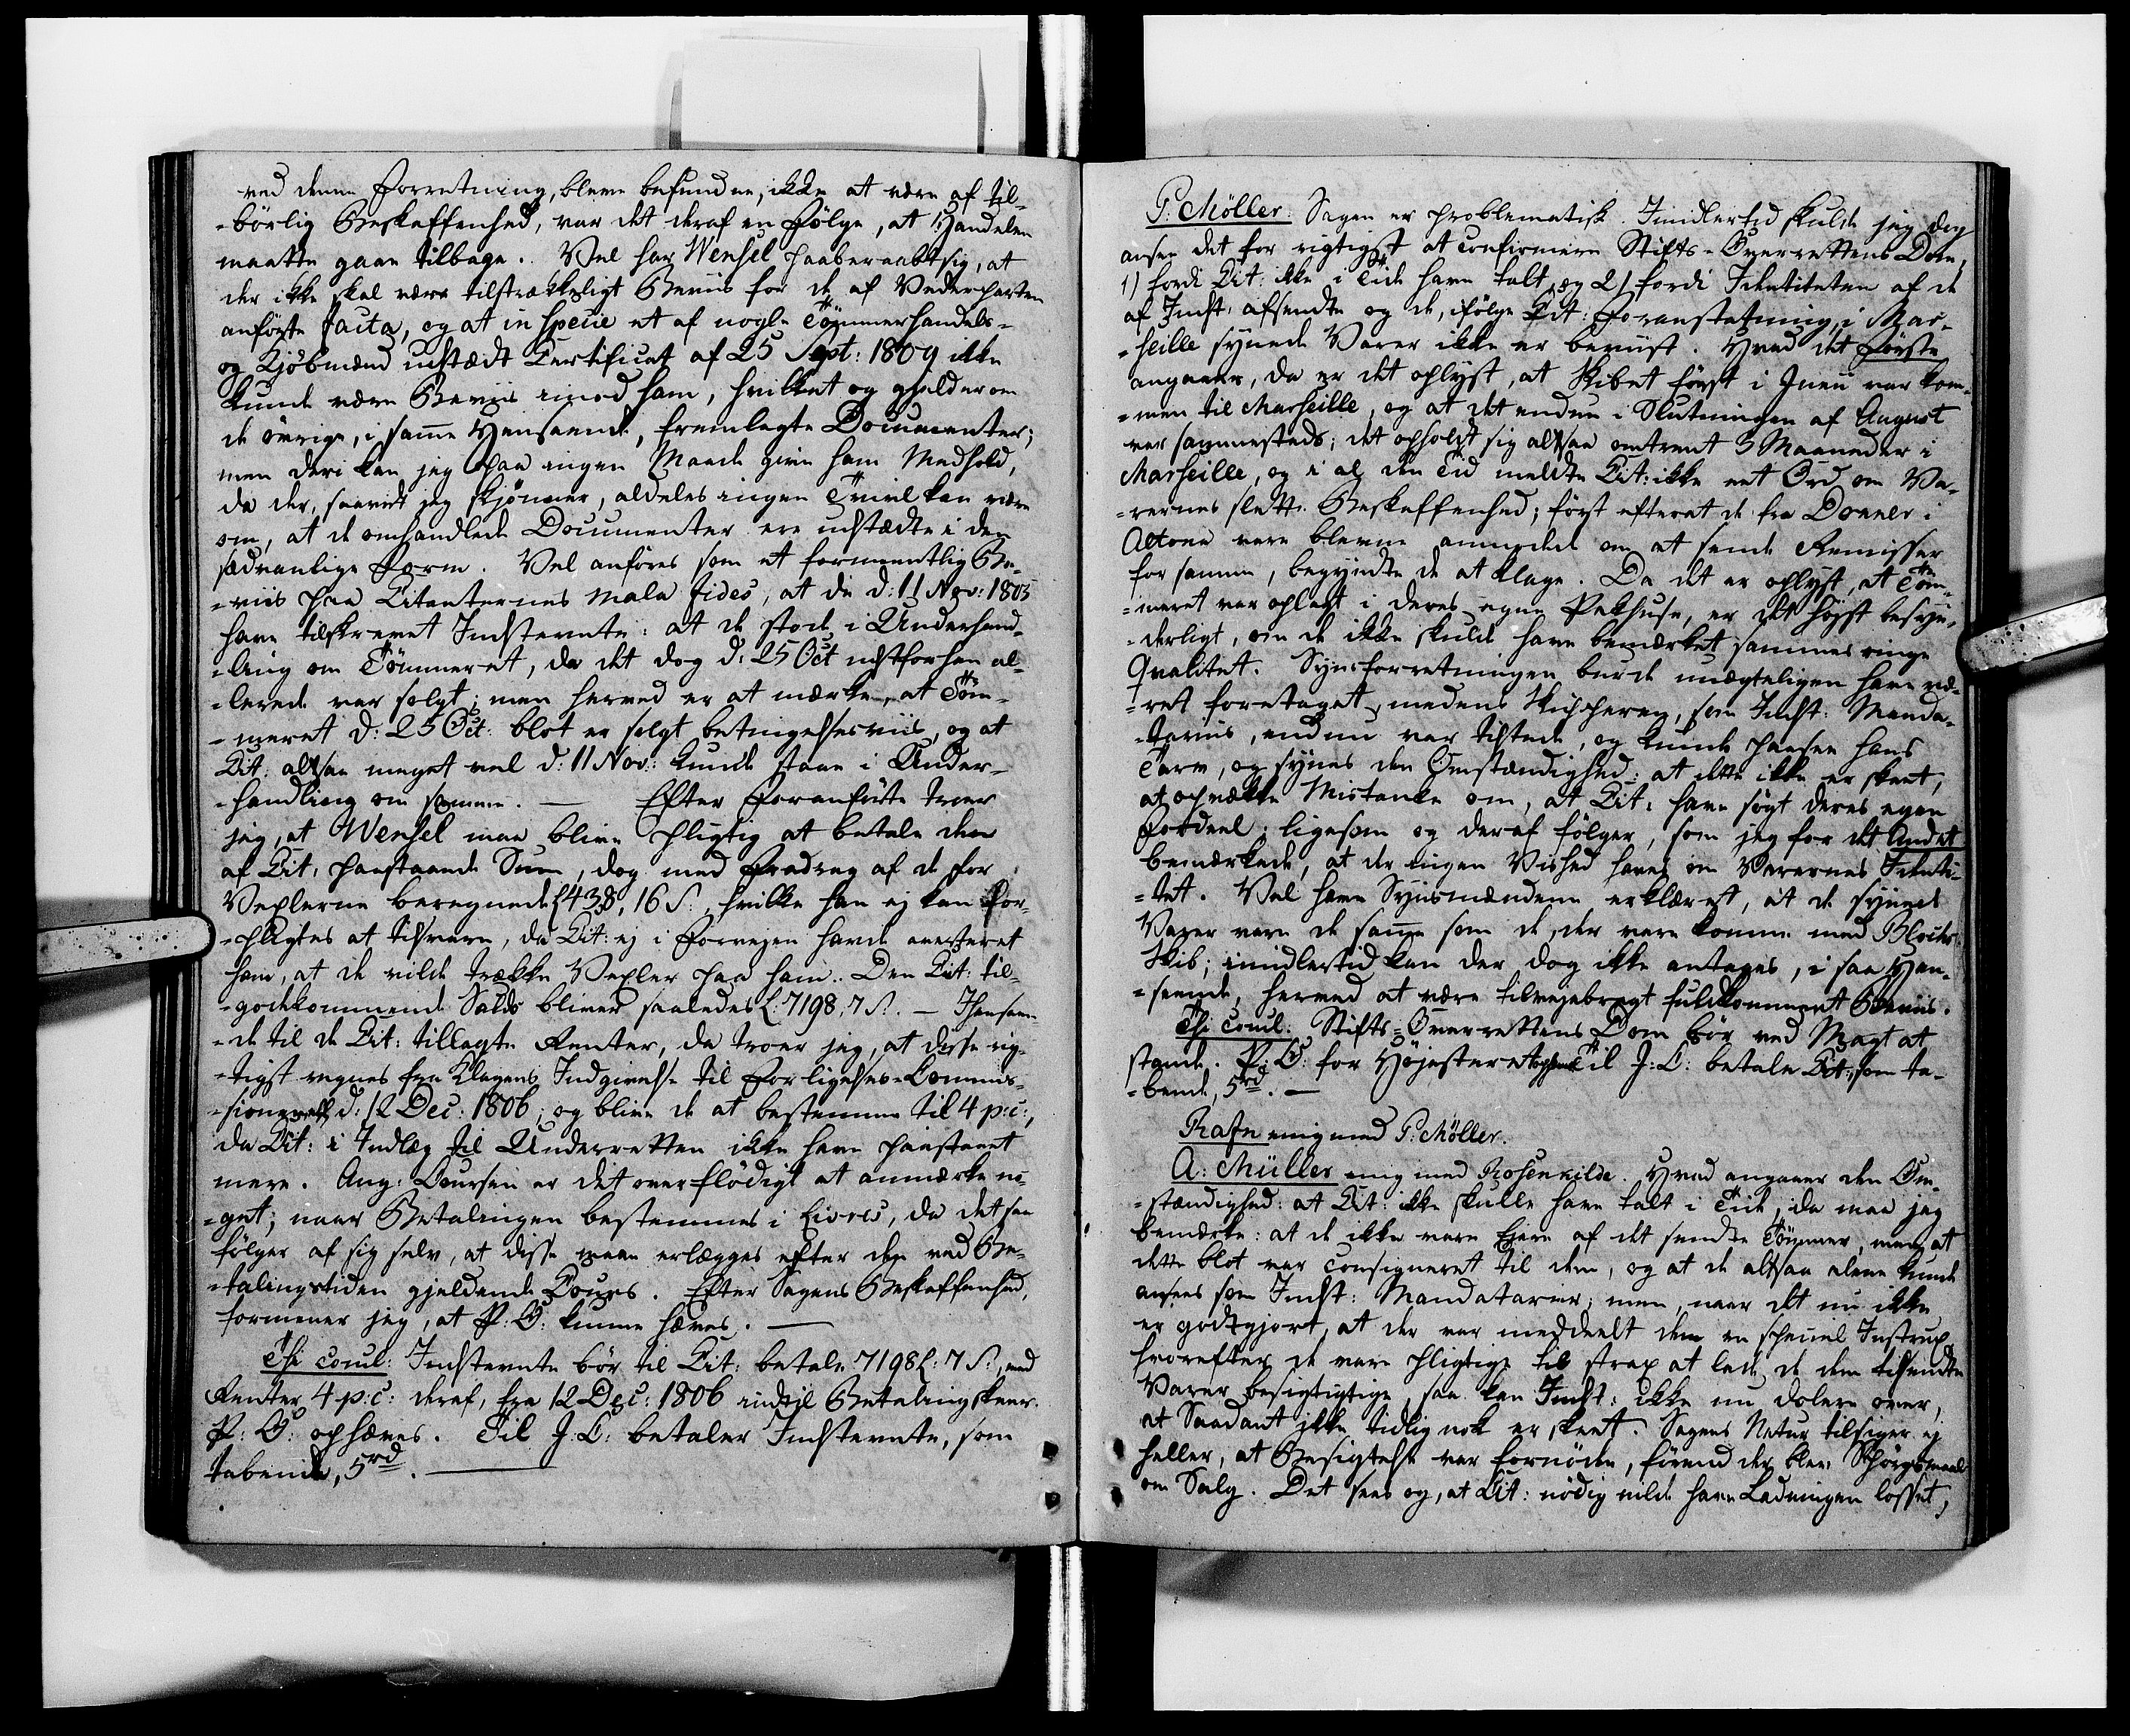 ved denne Forretning, bleve befundne, ikke at være af til-
-börlig Beskaffenhed, var det deraf en Følge, at Handelen
maatte gaae tilbage. Vel har Wensel paaberaabt sig, at
der ikke skal være tilstrækkeligt Beviis for de af Vederparten
anførte facta, og at in specie et af nogle Tømmerhandels-
og Kjøbmænd udstædt Certificat af 25 Sept: 1809 ikke
kunde være Beviis imod ham, hvilket og gjelder om
de øvrige, i samme Henseende, fremlagte Documenter;
men deri kan jeg paa ingen Maade give ham Medhold,
da der, saavidt jeg skjønner, aldeles ingen Tvivl kan være
om, at de omhandlede Documenter ere udstædte i den
sædvanlige Form. Vel anføres som et formeentlig Be-
-viis paa Citanternes mala fides, at de d: 11 Nov: 1805
have tilskrevet Indstevnte: at de stode i Underhand-
-ling om Tømmeret, da det dog d: 25 Oct næstforhen al-
-lerede var solgt; men herved er at mærke, at Tøm-
-meret d: 25 Oct: blot er solgt betingelsesviis, og at
Cit: altsaa meget vel d: 11 Nov: kunde staae i Under-
-handling om samme. — Efter Foranførte troer
jeg, at Wensel maa blive pligtig at betale den
af Cit: paastaaede Sum, dog med Fradrag af de for
Vexlerne beregnede £ 438, 16 S., hvilke han ej kan for-
-pligtes at tilsvare, da Cit: ej i Forvejen havde averteret
ham, at de vilde trække Vexler paa ham. Den Cit: til-
-godekommende Saldo bliver saaledes £: 7198, 7 S. — Henseen-
-de til de Cit: tillagte Renter, da troer jeg, at disse rig-
-tigst regnes fra Klagens Indgivelse til Forligelses-Commis-
-sionen d: 12 Dec: 1806; og blive de at bestemme til 4 p:c:,
da Cit: i Indlæg til Underretten ikke have paastaaet
mere. Ang: Coursen er det overflødigt at anmærke no-
-get; naar Betalingen bestemmes i Livres, da det saa
følger af sig selv, at disse maae erlægges efter den ved Be-
-talingstiden gjeldende Cours. Efter Sagens Beskaffenhed,
formener jeg, at P: O: kunne hæves. —
Thi concl: Indstevnte bør til Cit: betale 7198 £: 7 S., med
Renter 4 p:c: deraf, fra 12 Dec: 1806 indtil Betaling skeer.
P: O: ophæves. Til J: C: betaler Indstevnte, som
tabende, 5 rd. —
P: Möller: Sagen er problematisk. Imidlertid skulde jeg dog
ansee det for rigtigst at confirmere Stifts-Overrettens Dom,
1) fordi Cit: ikke i Tide have talt, og 2) fordi Identiteten af de
af Indst: afsendte og de, ifølge Cit: Foranstaltning, i Mar-
-seille synede Varer ikke er beviist. Hvad det Første
angaaer, da er det oplyst, at Skibet først i Junii var kom-
-men til Marseille, og at det endnu i Slutningen af August
var sammesteds; det opholdt sig altsaa omtrent 3 Maaneder i
Marseille, og i al den Tid meldte Cit: ikke eet Ord om Va-
-rernes slette Beskaffenhed; først efterat de fra Donner i
Altona vare blevne anmodede om at sende Remisser
for samme, begyndte de at klage. Da det er oplyst, at Töm-
-meret var oplagt i deres egne Pakhuse, er det højst besyn-
-derligt, om de ikke skulde have bemærket sammes ringe
Qvalitet. Synsforretningen burde unægteligen have væ-
-ret foretaget, medens Skipperen, som Indst: Manda-
-tarius, endnu var tilstede, og kunde paasee hans
Tarv, og synes den Omstændighed: at dette ikke er skeet,
at opvække Mistanke om, at Cit: have søgt deres egen
Fordeel; ligesom og deraf følger, som jeg for det Andet
bemærkede, at der ingen Vished haves om Varernes Identi-
-tet. Vel have Synsmændene erklæret, at de synede
Varer vare de samme som de, der vare komne med Blochs
Skib; imidlertid kan der dog ikke antages, i saa Hen-
-seende, herved at være tilvejebragt fuldkomment Beviis.
Thi concl: Stifts-Overrettens Dom bør ved Magt at
stande. P: O: for Højesteret ophæves. Til J: C: betaler Cit:, som ta-
-bende, 5 rd. —
Rafn enig med P: Möller.
A: Müller enig med Rosenvilde. Hvad angaaer den Om-
-stændighed: at Cit: ikke skulle have talt i Tide, da maa jeg
bemærke: at de ikke vare Ejere af det sendte Tømmer, men at
dette blot var consigneret til dem, og at de altsaa alene kunde
ansees som Indst: Mandatarier; men, naar det nu ikke
er godtgjort, at der var meddeelt dem en speciel Instrux,
hvorefter de vare pligtige til strax at lade de dem tilsendte
Varer besigtigtige, saa kan Indst: ikke nu dolere over,
at Saadant ikke tidlig nok er skeet. Sagens Natur tilsiger ej
heller, at Besigtelse var fornøden, førend der blev Spørgsmaal
om Salg. Det sees og, at Cit: nødig vilde have Ladningen losset,